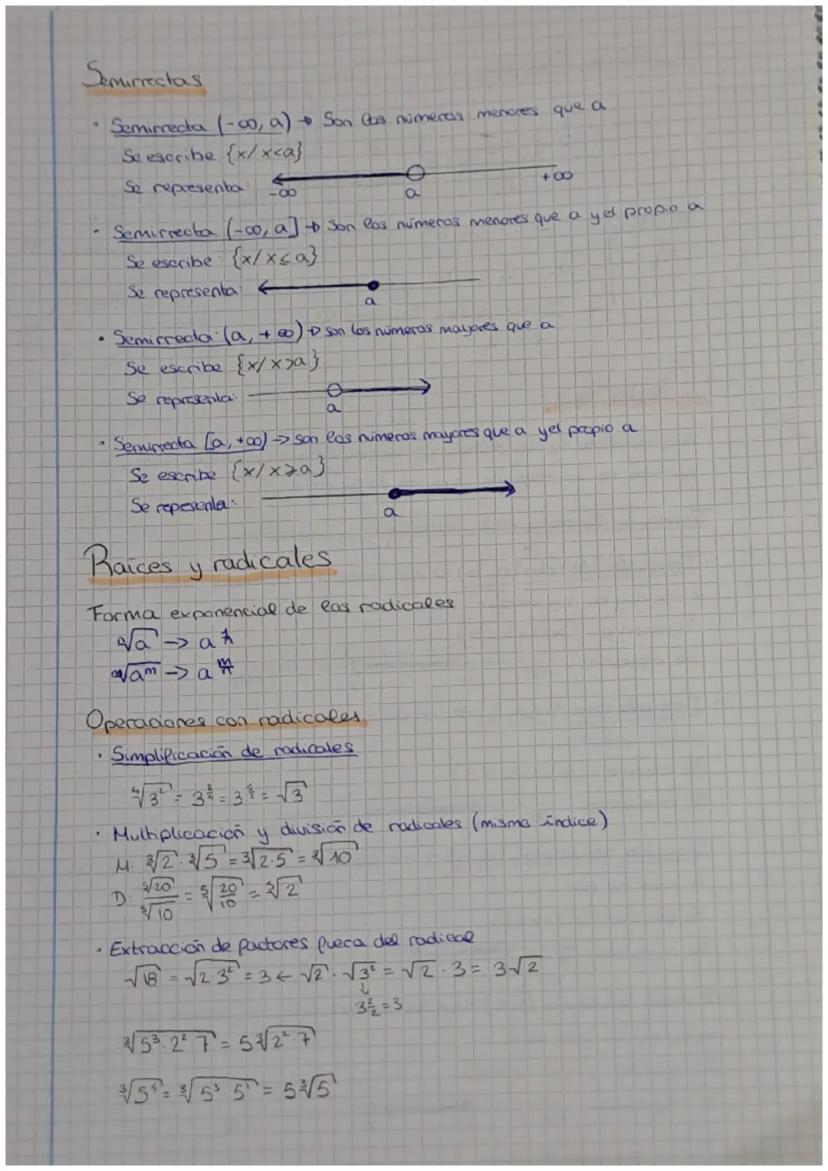 Semirrectas
· Semirrecta (-∞, a) → Son los números menores que a
Se escribe {x/x<a}
Se representa
-∞ a +∞
· Semirrecta (-∞, a] → Son los números menores que a y el propio a
Se escribe: {x/x≤a}
Se representa:
a
· Semirrecta: (a, +∞) → son los números mayores que a
Se escribe {x/x>a}
Se representa:
a
· Semirrecta [a, +∞) → son los números mayores que a y el propio a
Se escribe {x/x≥a}
Se representa:
a
Raíces y radicales
Forma exponencial de los radicales
ⁿ√a → a^(1/n)
ⁿ√a^m → a^(m/n)
Operaciones con radicales
· Simplificación de radicales
⁴√3² = 3^(2/4) = 3^(1/2) = √3
· Multiplicación y división de radicales (mismo índice)
M: ³√2 · ³√5 = ³√2·5 = ³√10
D: ⁵√20 / ⁵√10 = ⁵√(20/10) = ⁵√2
· Extracción de factores fuera del radical
√18 = √2·3² = 3 ← √2 · √3² = √2 · 3 = 3√2
↓
3^(2/2) = 3
³√5³·2²·7 = 5 ³√2²·7
³√5⁴ = ³√5³·5¹ = 5 ³√5